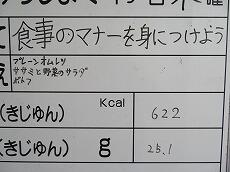 食事のマナーを身につけよう
プレーンオムレツ
ササミと野菜のサラダ
ポトフ
(きじゅん) Kcal 622
(きじゅん) g 25.1